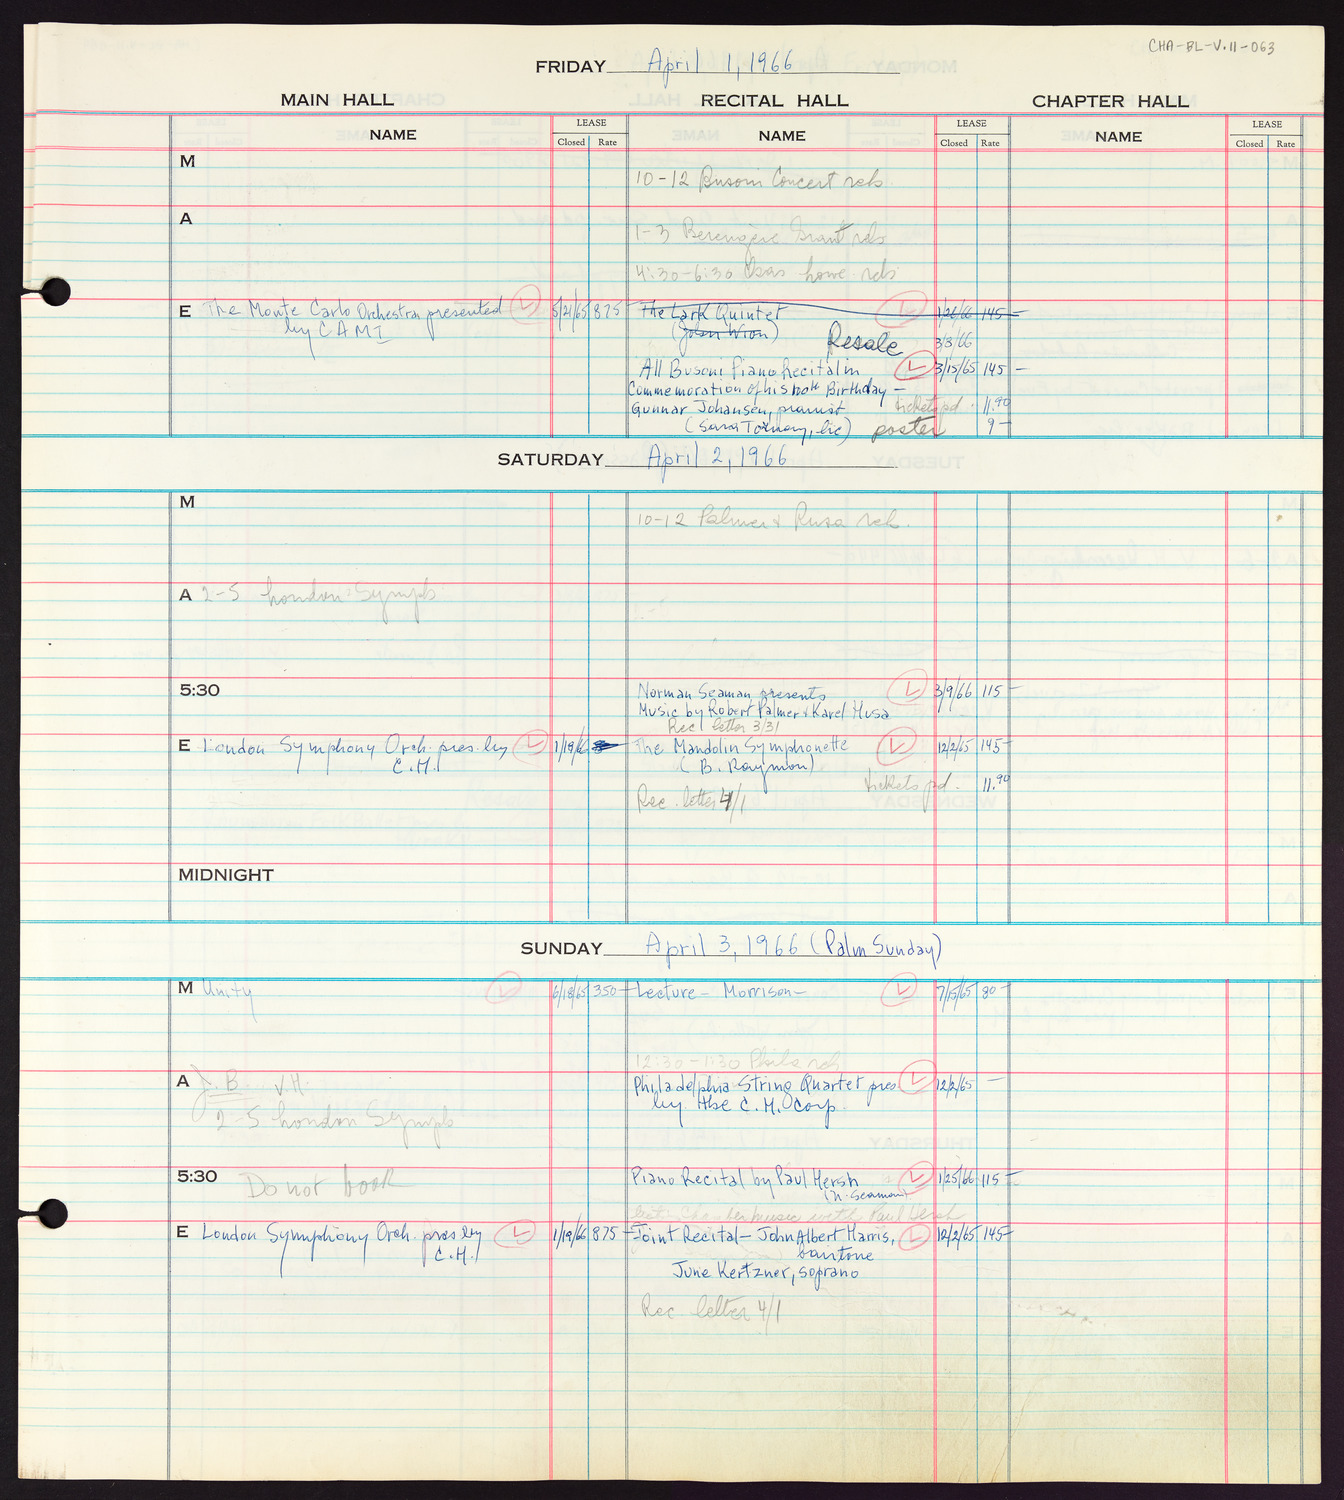 CHA-BL-V.11-063
FRIDAY April 1, 1966
MAIN HALL RECITAL HALL CHAPTER HALL
NAME LEASE Closed Rate NAME LEASE Closed Rate NAME LEASE Closed Rate
M
10-12 Busoni Concert reh.
A
1-3 Berengere Grant reh
4:30-6:30 howe reh
E The Monte Carlo Orchestra presented 5/21/65 875- The Lark Quintet 1/26/66 145-
by CAMI (John Wion) Resale 3/8/66
All Busoni Piano Recital in 3/15/65 145-
Commemoration of his 100th Birthday-
Gunnar Johansen, pianist tickets pd. 11.90
(Sara Tornay, lic) poster 9-
SATURDAY April 2, 1966
M
10-12 Palmer & Husa reh.
A 2-5 London Symph
5:30 Norman Seaman presents 3/9/66 115-
Music by Robert Palmer & Karel Husa
Rec letter 3/31
E London Symphony Orch. pres. by 1/19/66 The Mandolin Symphonette 12/2/65 145-
C.H. (B. Raymon)
tickets pd. 11.90
Rec. letter 4/1
MIDNIGHT
SUNDAY April 3, 1966 (Palm Sunday)
M Unity 6/18/65 350- Lecture - Morrison- 7/15/65 80-
12:30-1:30 Phila reh
A J.B. V.H. Philadelphia String Quartet pres. 12/2/65 -
by the C.H. Corp.
2-5 London Symph
5:30 Do not book Piano Recital by Paul Hersh 1/25/66 115-
(N. Seaman)
Chamber music with Paul Hersh
E London Symphony Orch. pres by 1/19/66 875- Joint Recital - John Albert Harris, 12/2/65 145-
C.H. baritone
June Kertzner, soprano
Rec letter 4/1